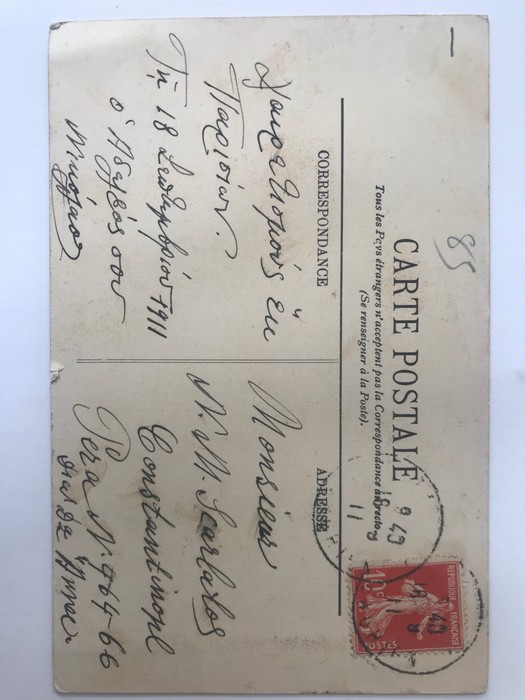 85
CARTE POSTALE
Tous les Pays étrangers n'acceptent pas la Correspondance au recto
(Se renseigner à la Poste).
CORRESPONDANCE
Χαιρετισμούς ἐκ
Παρισίων.
Τῇ 18 Σεπτεμβρίου 1911
ὁ Ἀδελφός σου
ADRESSE
Monsieur
N. M. Scarlatos
Constantinopl
Pera N. 064-66
RÉPUBLIQUE FRANÇAISE
10 c
POSTES